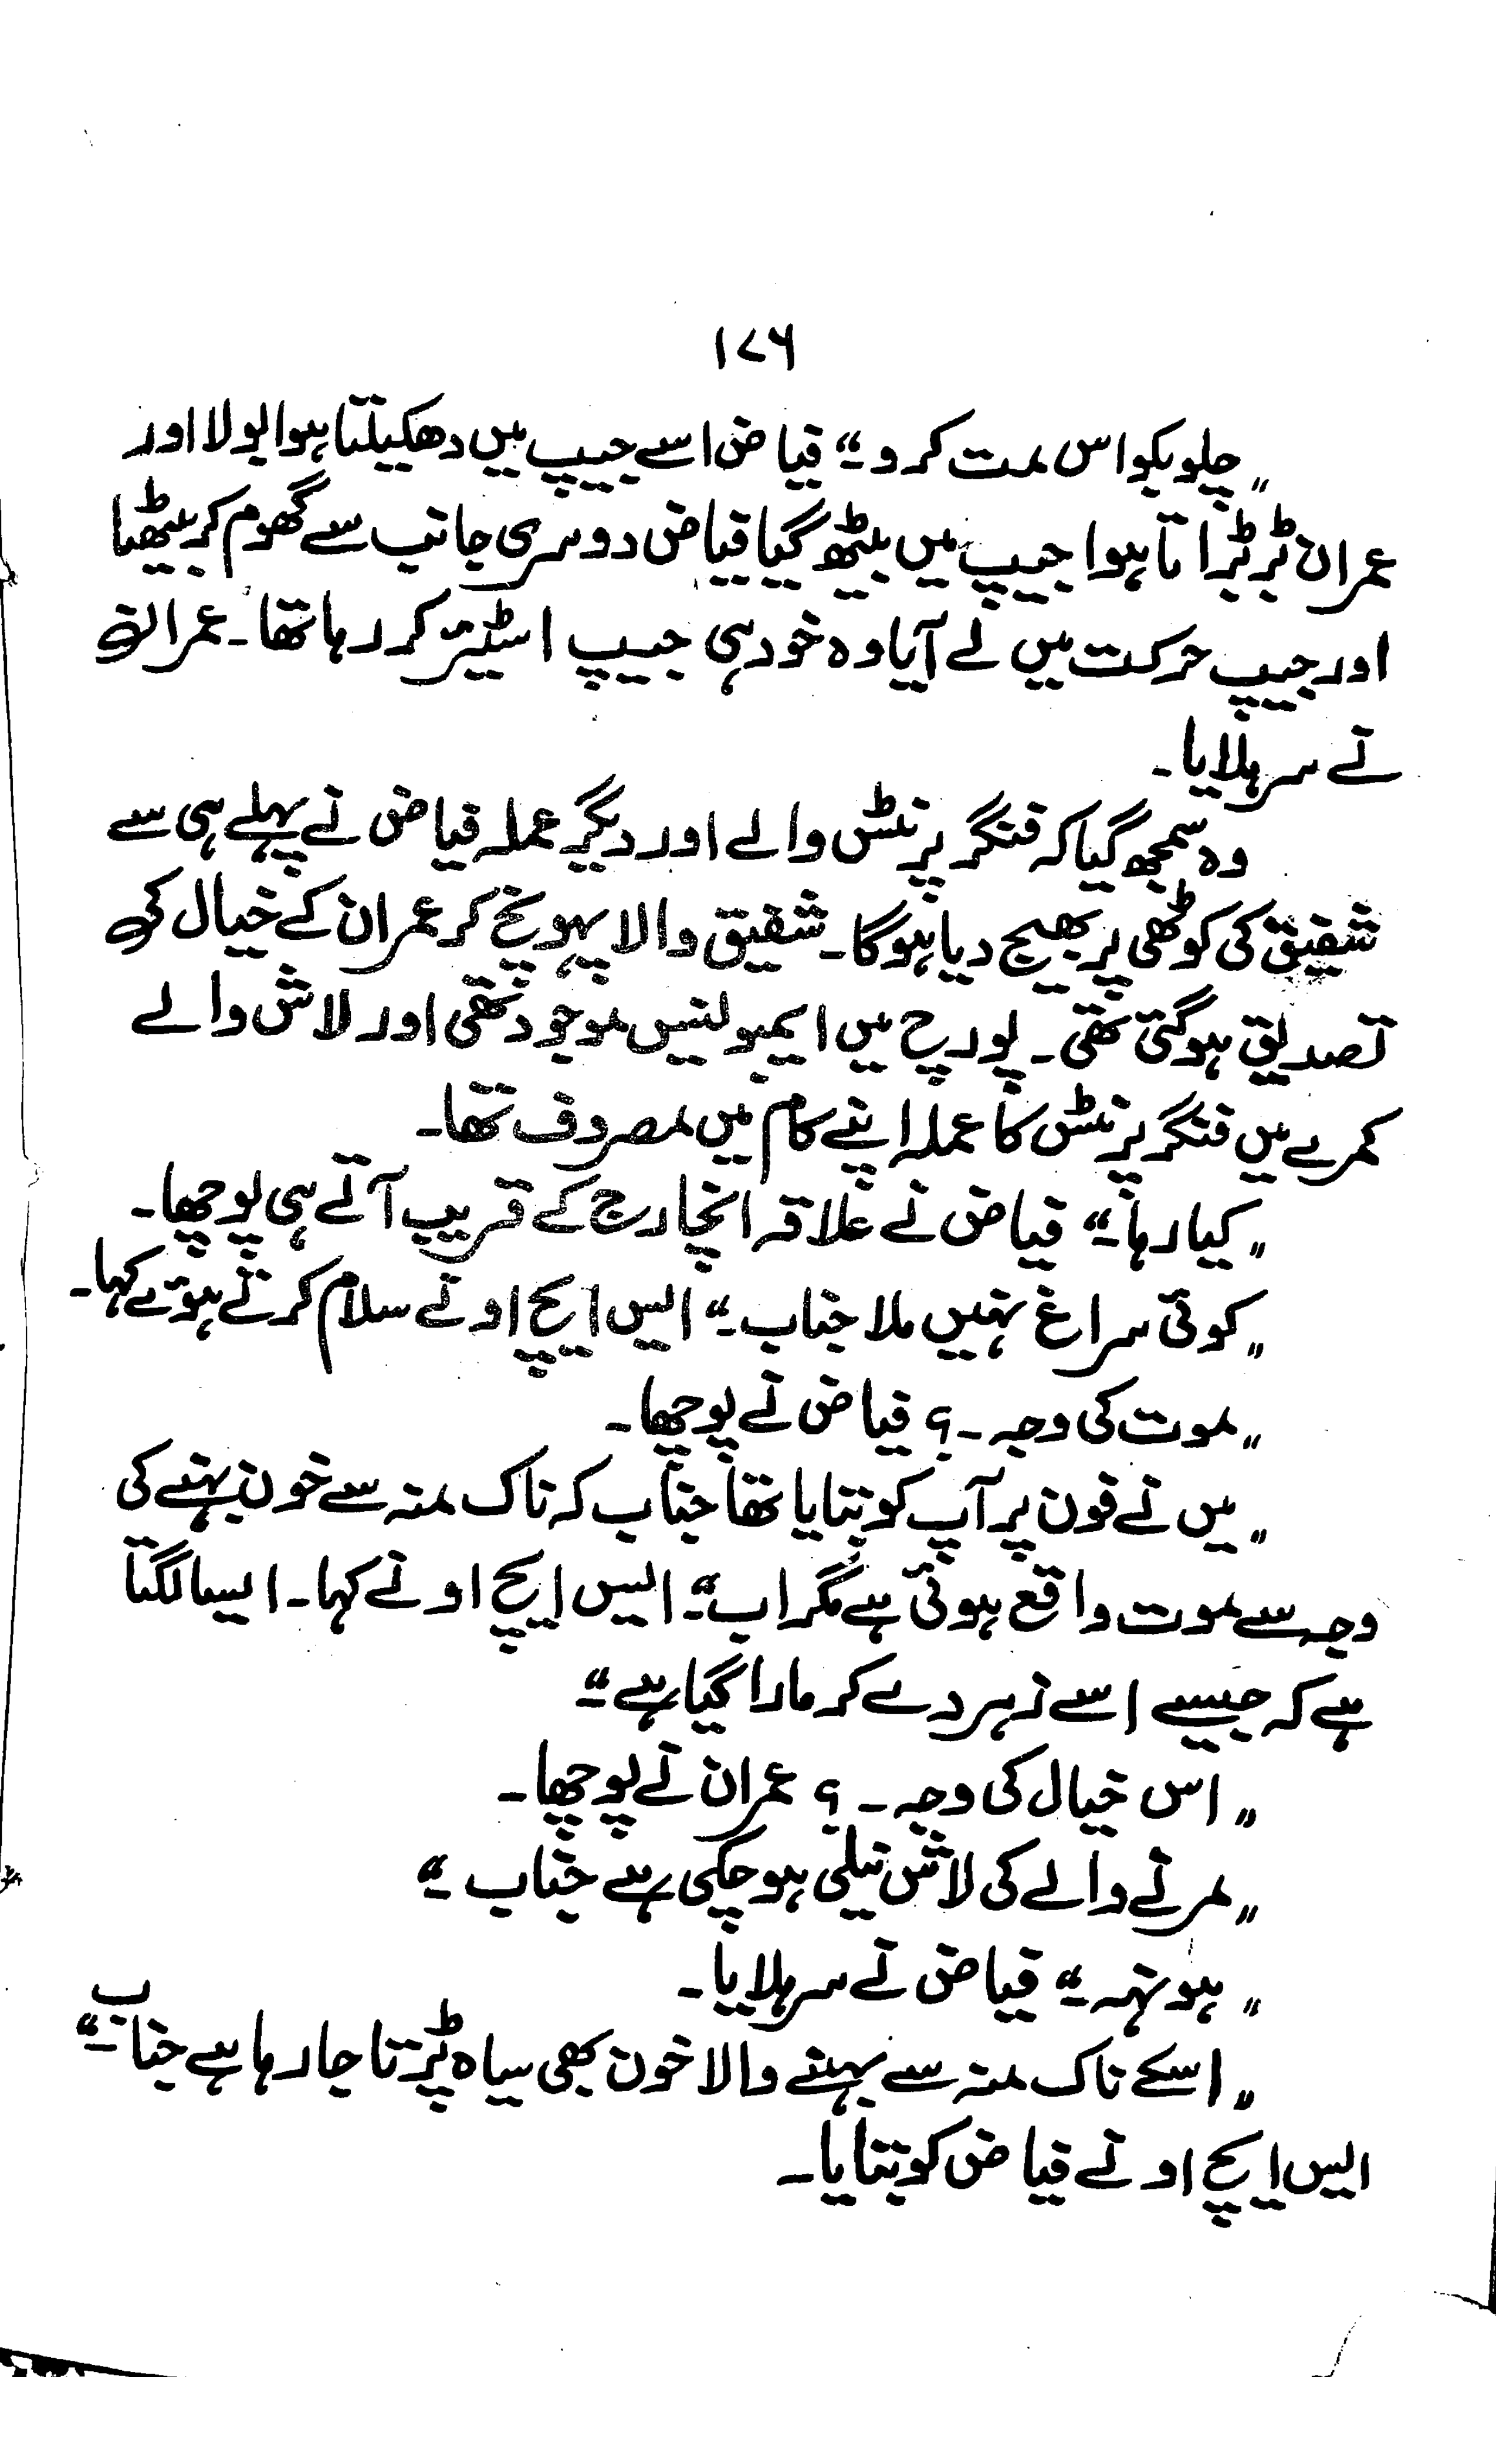 ۱۷۶
"چلو بکواس مت کرو۔" فیاض اسے جیپ میں دھکیلتا ہوا بولا اور
عمران بڑبڑاتا ہوا جیپ میں بیٹھ گیا فیاض دوسری جانب سے گھوم کر بیٹھا
اور جیپ حرکت میں لے آیا وہ خود ہی جیپ اسٹیئر کر رہا تھا۔ عمران
نے سر ہلایا۔
وہ سمجھ گیا کہ فنگر پرنٹس والے اور دیگر عملہ فیاض نے پہلے ہی سے
شفیق کی کوٹھی پر بھیج دیا ہوگا۔ شفیق والا پہونچ کر عمران کے خیال کی
تصدیق ہوگئی تھی۔ پورچ میں ایمبولنیس موجود تھی اور لاش والے
کمرے میں فنگر پرنٹس کا عملہ اپنے کام میں مصروف تھا۔
"کیا رہا۔" فیاض نے علاقہ انچارج کے قریب آتے ہی پوچھا۔
"کوئی سراغ نہیں ملا جناب۔" ایس ایچ او نے سلام کرتے ہوئے کہا۔
"موت کی وجہ۔؟ فیاض نے پوچھا۔
"میں نے فون پر آپ کو بتایا تھا جناب کہ ناک منہ سے خون بہنے کی
وجہ سے موت واقع ہوئی ہے مگر اب۔" ایس ایچ او نے کہا۔ ایسا لگتا
ہے کہ جیسے اسے زہر دے کر مارا گیا ہے۔"
"اس خیال کی وجہ۔؟ عمران نے پوچھا۔
"مرنے والے کی لاش نیلی ہوچکی ہے جناب۔"
"ہونہہ۔" فیاض نے سر ہلایا۔
"اسکے ناک منہ سے بہنے والا خون بھی سیاہ پڑتا جا رہا ہے جناب۔"
ایس ایچ او نے فیاض کو بتایا۔